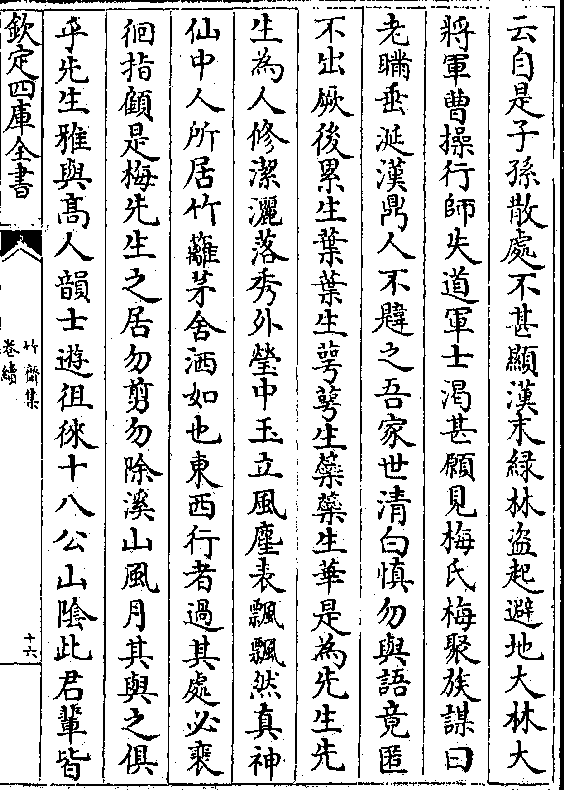 云自是子孫散處不甚顯漢末緑林盜起避地大林大
將軍曹操行師失道軍士渴甚願見梅氏梅聚族謀曰
老瞞垂涎漢鼎人不韙之吾家世清白慎勿與語竟匿
不出厥後累生葉葉生萼萼生蘂蘂生華是為先生先
生為人修潔灑落秀外瑩中玉立風塵表飄飄然真神
仙中人所居竹籬茅舍洒如也東西行者過其處必裵
徊指顧是梅先生之居勿剪勿除溪山風月其與之俱
乎先生雅與髙人韻士遊徂徠十八公山隂此君輩皆
欽定四庫全書
竹齋集
卷續
十六